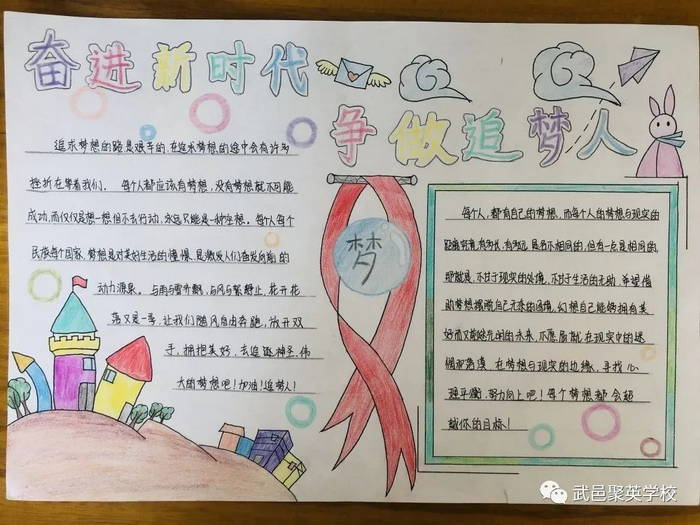 奋进新时代
争做追梦人
追求梦想的路是艰辛的,在追求梦想的途中会有许多
挫折在等着我们。每个人都应该有梦想,没有梦想就不可能
成功,而仅仅是想一想但不去行动,永远只能是一种空想。每个人每个
民族每个国家,梦想是对美好生活的憧憬,是激发人们奋发向前的
动力源泉。与雨与雪齐飘,与风与絮静止,花开花
落又是一季,让我们随风自由奔跑,放开双
手,拥抱美好,去追逐神圣,伟
大的梦想吧!加油!追梦人!
梦
每个人,都有自己的梦想,而每个人的梦想与现实的
距离有着,有多长,有多远,是各不相同的,但有一点是相同的,
那就是,不甘于现实的处境,不甘于生活的无助,希望借
助梦想摆脱自己无奈的困境,幻想自己能够拥有美
好而又能绽光的的未来,不愿颓靡,在现实中的迷
惘和落漠,在梦想与现实的边缘,寻找心
理平衡,努力向上吧!每个梦想都会超
越你的目标!
武邑聚英学校